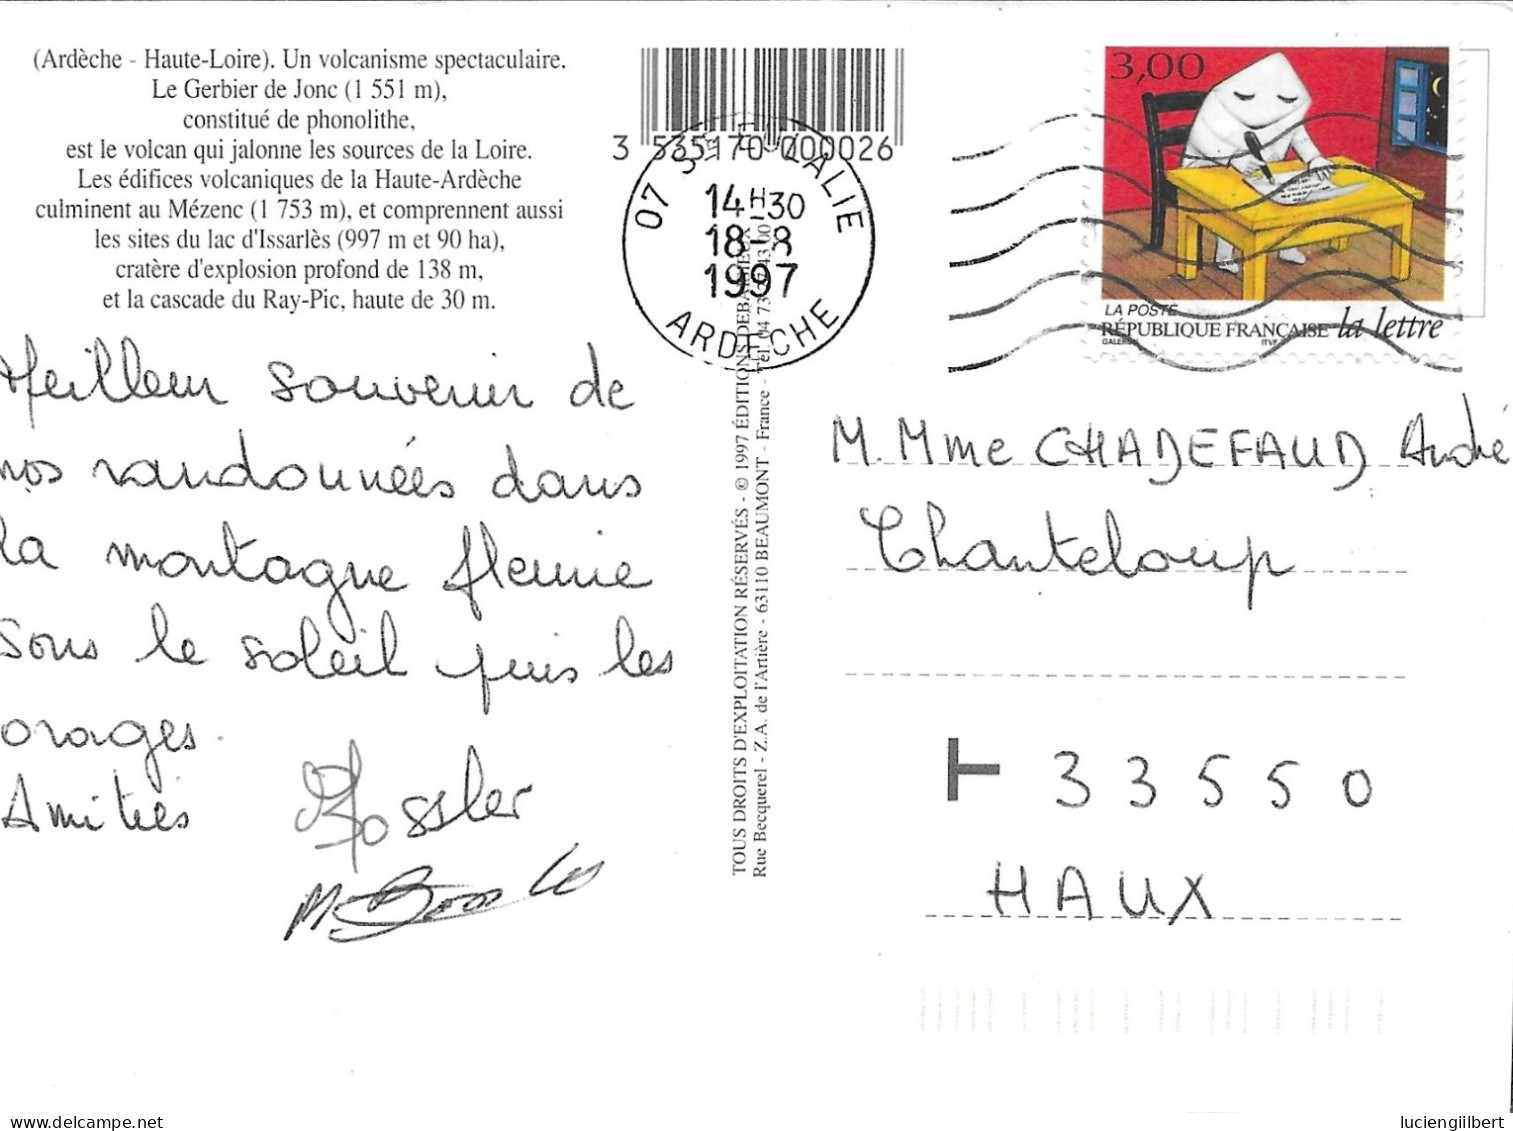 (Ardèche - Haute-Loire). Un volcanisme spectaculaire.
Le Gerbier de Jonc (1 551 m),
constitué de phonolithe,
est le volcan qui jalonne les sources de la Loire.
Les édifices volcaniques de la Haute-Ardèche
culminent au Mézenc (1 753 m), et comprennent aussi
les sites du lac d'Issarlès (997 m et 90 ha),
cratère d'explosion profond de 138 m,
et la cascade du Ray-Pic, haute de 30 m.
Meilleur souvenir de
nos randonnées dans
la montagne fleurie
sous le soleil puis les
orages.
Amitiés
3 535170 000026
07 EULALIE
14H30
18-8
1997
ARDECHE
TOUS DROITS D'EXPLOITATION RÉSERVÉS - © 1997 ÉDITIONS DEBAISIEUX
Rue Becquerel - Z.A. de l'Artière - 63110 BEAUMONT - France - Tél. 04 73
3,00
LA POSTE
RÉPUBLIQUE FRANÇAISE la lettre
ITVF
M. Mme CHADEFAUD André
Chanteloup
33550
HAUX
delcampe.net
luciengilbert